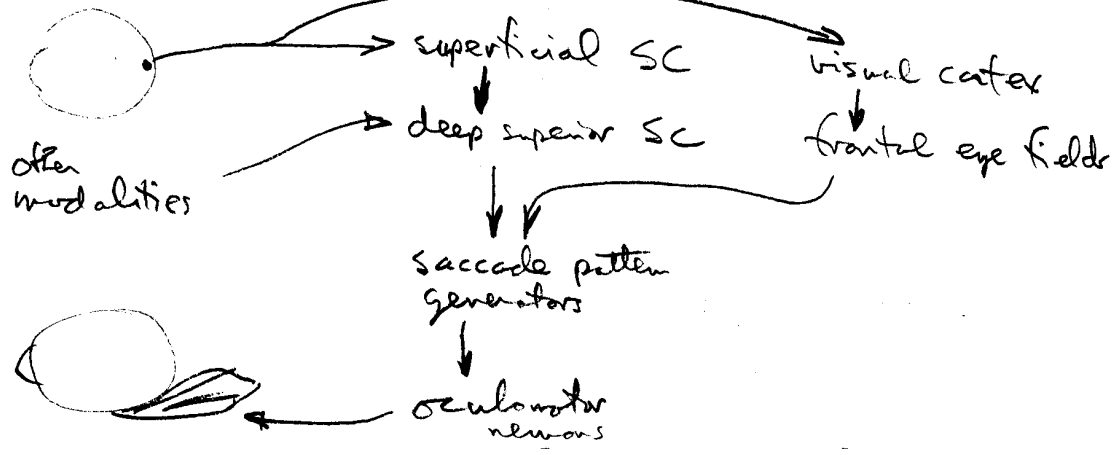 superficial SC
visual cortex
deep superior SC
frontal eye fields
other
modalities
saccade pattern
generators
oculomotor
neurons